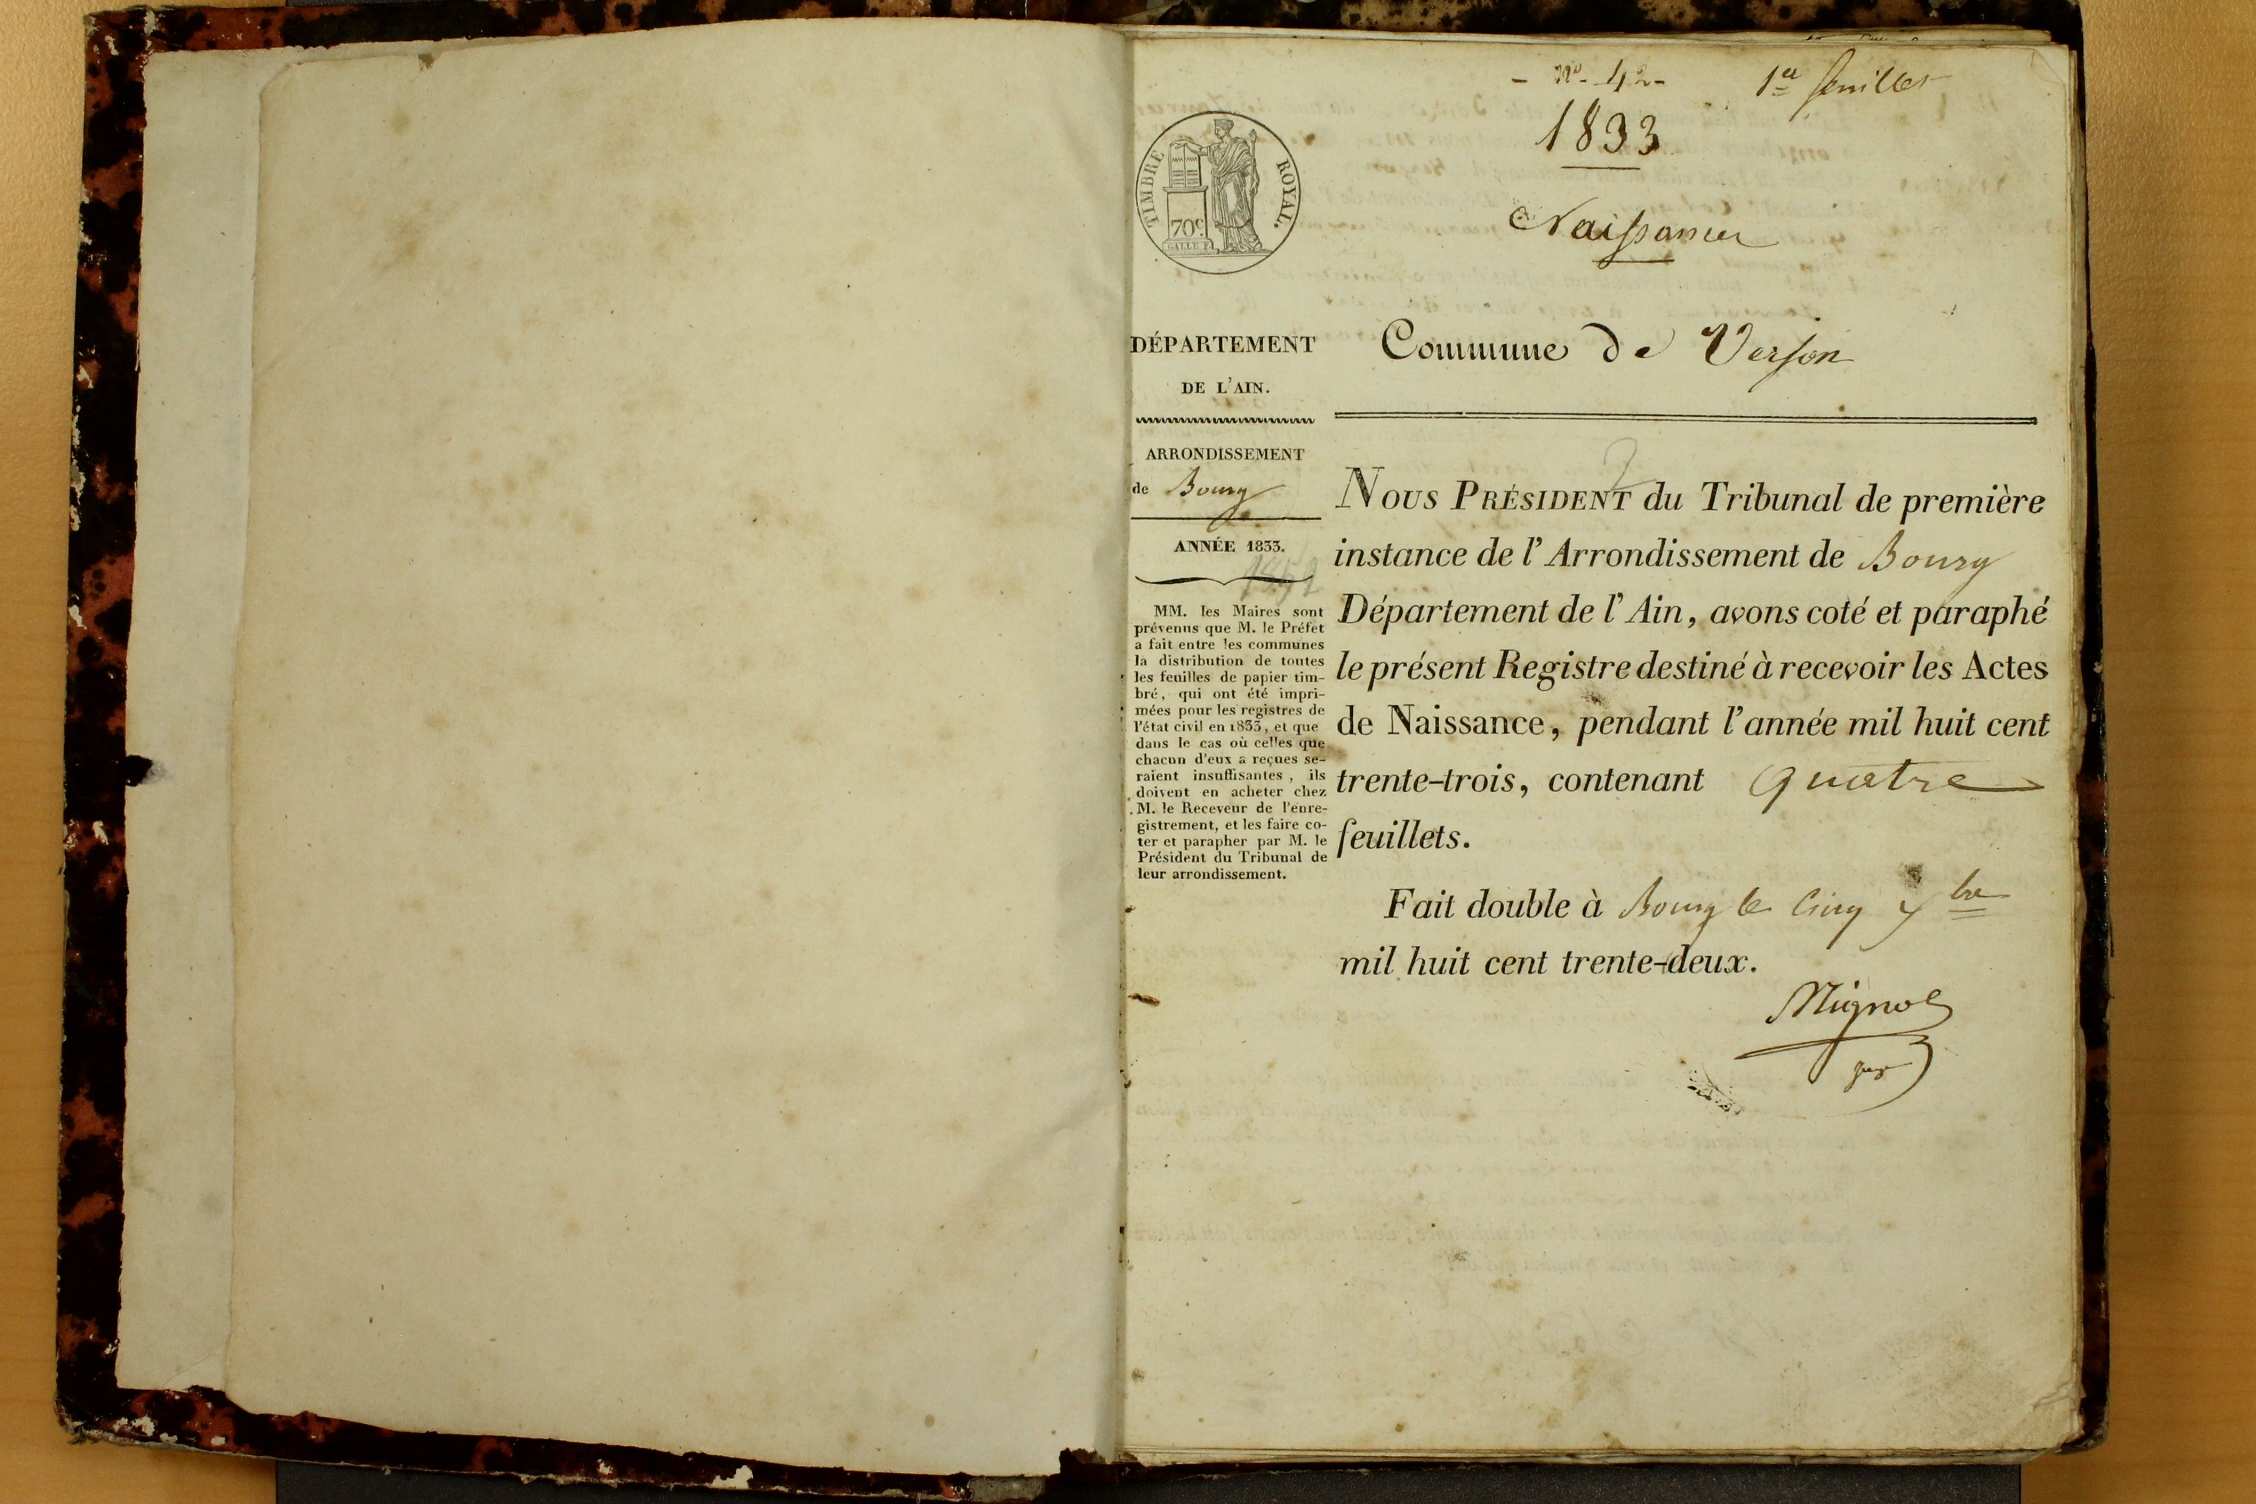 - N° - 42 -
1er feuillet
1833
Naissances
TIMBRE ROYAL.
70c
GALLE F.
DÉPARTEMENT
DE L'AIN.
ARRONDISSEMENT
de Bourg
ANNÉE 1833.
MM. les Maires sont
prévenus que M. le Préfet
a fait entre les communes
la distribution de toutes
les feuilles de papier tim-
bré, qui ont été impri-
mées pour les registres de
l'état civil en 1833, et que
dans le cas où celles que
chacun d'eux a reçues se-
raient insuffisantes, ils
doivent en acheter chez
M. le Receveur de l'enre-
gistrement, et les faire co-
ter et parapher par M. le
Président du Tribunal de
leur arrondissement.
Commune de Verjon
NOUS PRÉSIDENT du Tribunal de première
instance de l'Arrondissement de Bourg
Département de l'Ain, avons coté et paraphé
le présent Registre destiné à recevoir les Actes
de Naissance, pendant l'année mil huit cent
trente-trois, contenant quatre
feuillets.
Fait double à Bourg le cinq xbre
mil huit cent trente-deux.